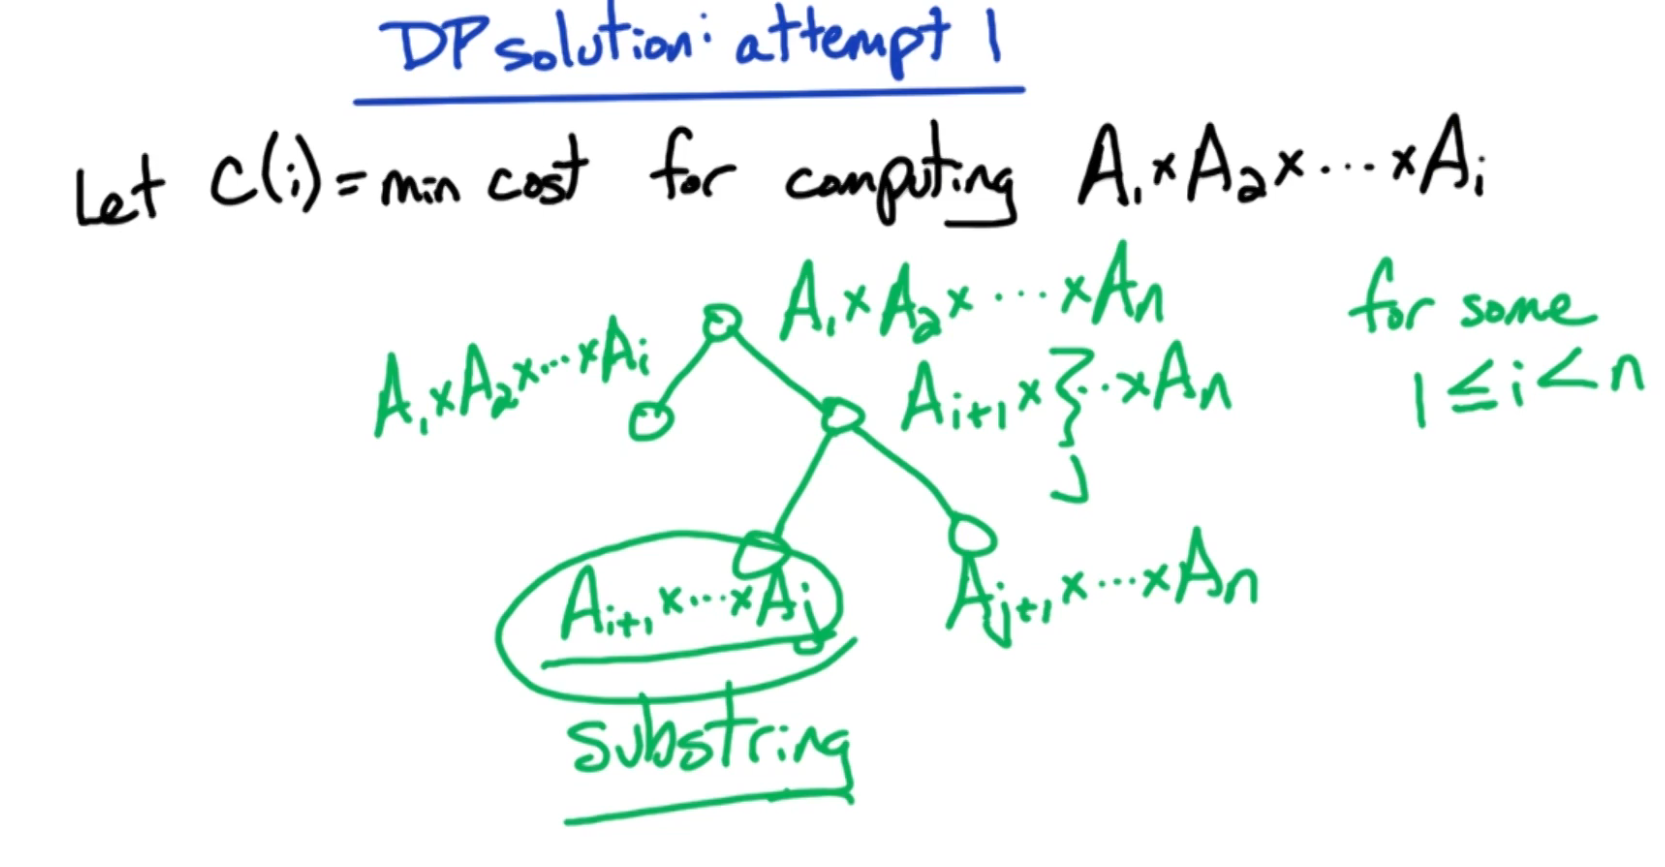 DP solution: attempt 1
Let C(i) = min cost for computing A₁ × A₂ × ... × Aᵢ
A₁ × A₂ × ... × Aₙ
for some
1 ≤ i < n
A₁ × A₂ × ... × Aᵢ
Aᵢ₊₁ × ... × Aₙ
Aᵢ₊₁ × ... × Aⱼ
Aⱼ₊₁ × ... × Aₙ
substring